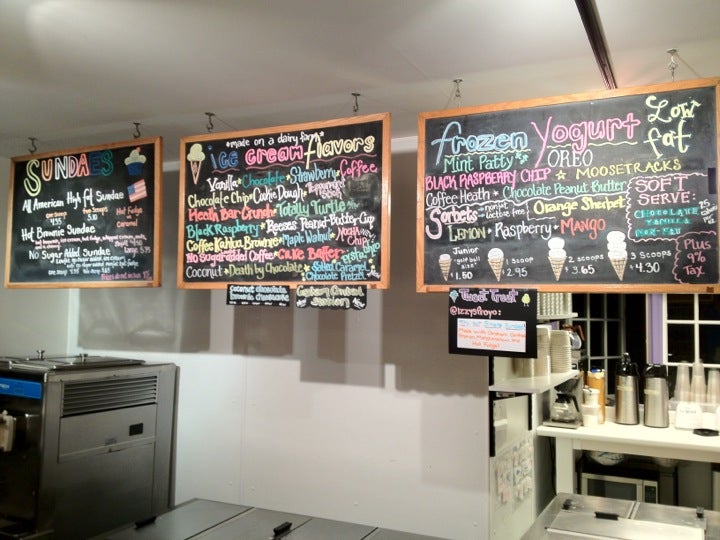 SUNDAES
All American High fat Sundae
Hot Fudge
Caramel
Hot Brownie Sundae
No Sugar Added Sundae
*made on a dairy farm*
ice cream flavors
Vanilla * Chocolate * Strawberry * Coffee
Chocolate Chip * Cookie Dough * Peppermint Stick
Heath Bar Crunch * Totally Turtle
Black Raspberry * Reeses Peanut Butter Cup
Coffee Kahlua Brownie * Maple Walnut * Mocha Chip
No Sugar Added Coffee * Cake Batter * Pistachio
Coconut * Death by Chocolate * Salted Caramel Chocolate Pretzel
Coconut Chocolate
Brownie
Station
frozen yogurt
Low fat
Mint Patty * OREO
BLACK RASPBERRY CHIP * MOOSETRACKS
Coffee Heath * Chocolate Peanut Butter
Sorbets * nonfat lactose free
Orange Sherbet
LEMON * Raspberry * MANGO
SOFT SERVE:
CHOCOLATE
VANILLA
NON-FAT
75
Plus
9%
Tax
Junior
golf ball size
$1.50
1 scoop
$2.95
2 scoops
$3.65
3 scoops
$4.30
Tweet Treat
@izzysfroyo: